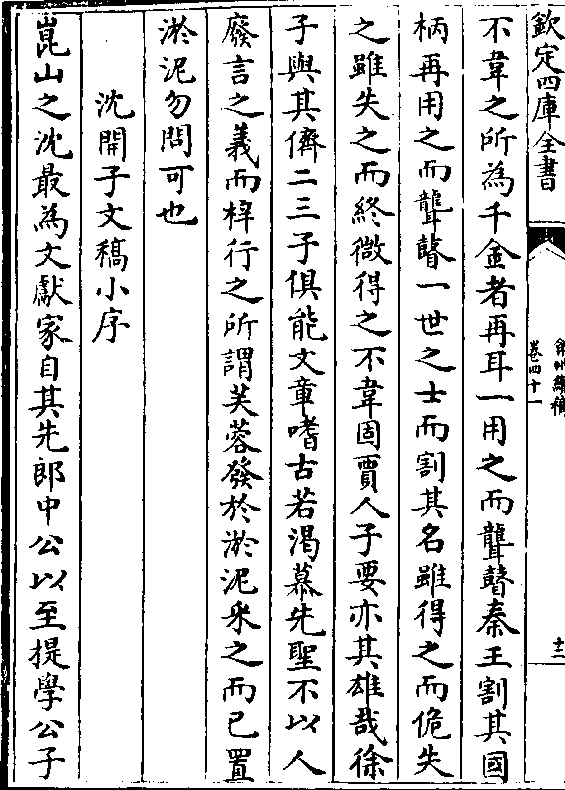 欽定四庫全書
弇州續稿
卷四十一
十二
不韋之所為千金者再耳一用之而聾瞽秦王割其國
柄再用之而聾瞽一世之士而割其名雖得之而佹失
之雖失之而終微得之不韋固賈人子要亦其雄哉徐
子與其儕二三子俱能文章嗜古若渴慕先聖不以人
廢言之義而梓行之所謂芙蓉發於淤泥采之而已置
淤泥勿問可也
沈開子文稿小序
崑山之沈最為文獻家自其先郎中公以至提學公子